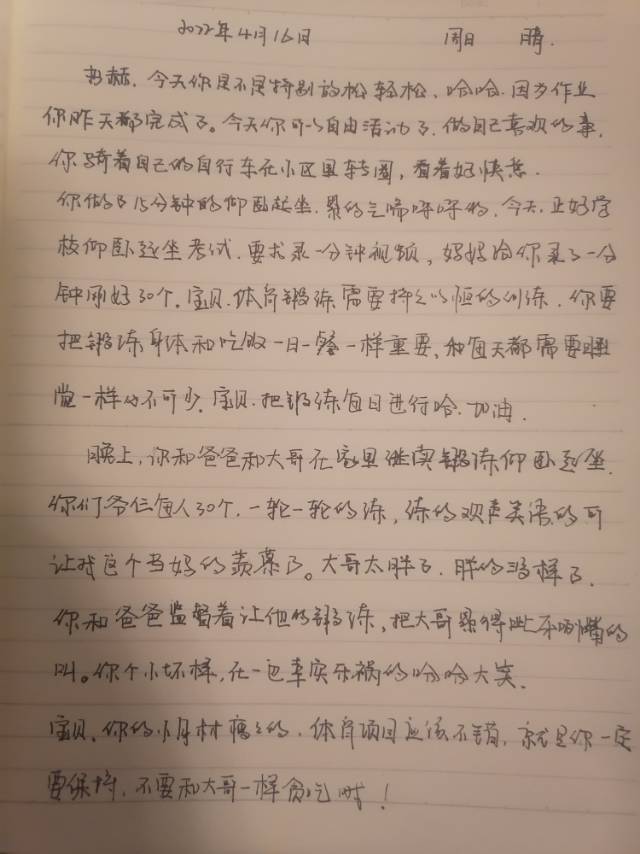 2022年4月16日 周日 晴.
书赫,今天你是不是特别放松轻松,哈哈.因为作业
你昨天都完成了。今天你可以自由活动了,做自己喜欢的事,
你骑着自己的自行车在小区里转圈,看着好快乐.
你做了15分钟的仰卧起坐.累的气喘呼呼的,今天,正好学
校仰卧起坐考试,要求录一分钟视频,妈妈给你录了一分
钟刚好30个.宝贝.体育锻炼需要持之以恒的训练,你要
把锻炼身体和吃饭一日一餐一样重要,和每天都需要睡
觉一样必不可少.宝贝.把锻炼每日进行哈.加油.
晚上,你和爸爸和大哥在家里继续锻炼仰卧起坐.
你们爷仨每人30个,一轮一轮的练,练的欢声笑语的可
让我这个当妈的羡慕了。大哥太胖了.胖的没样了.
你和爸爸监督着让他的锻炼,把大哥累得呲牙咧嘴的
叫。你个小坏样,在一边幸灾乐祸的哈哈大笑.
宝贝,你的小身材瘦瘦的,体育项目应该不错,就是你一定
要保持,不要和大哥一样贪吃哦!